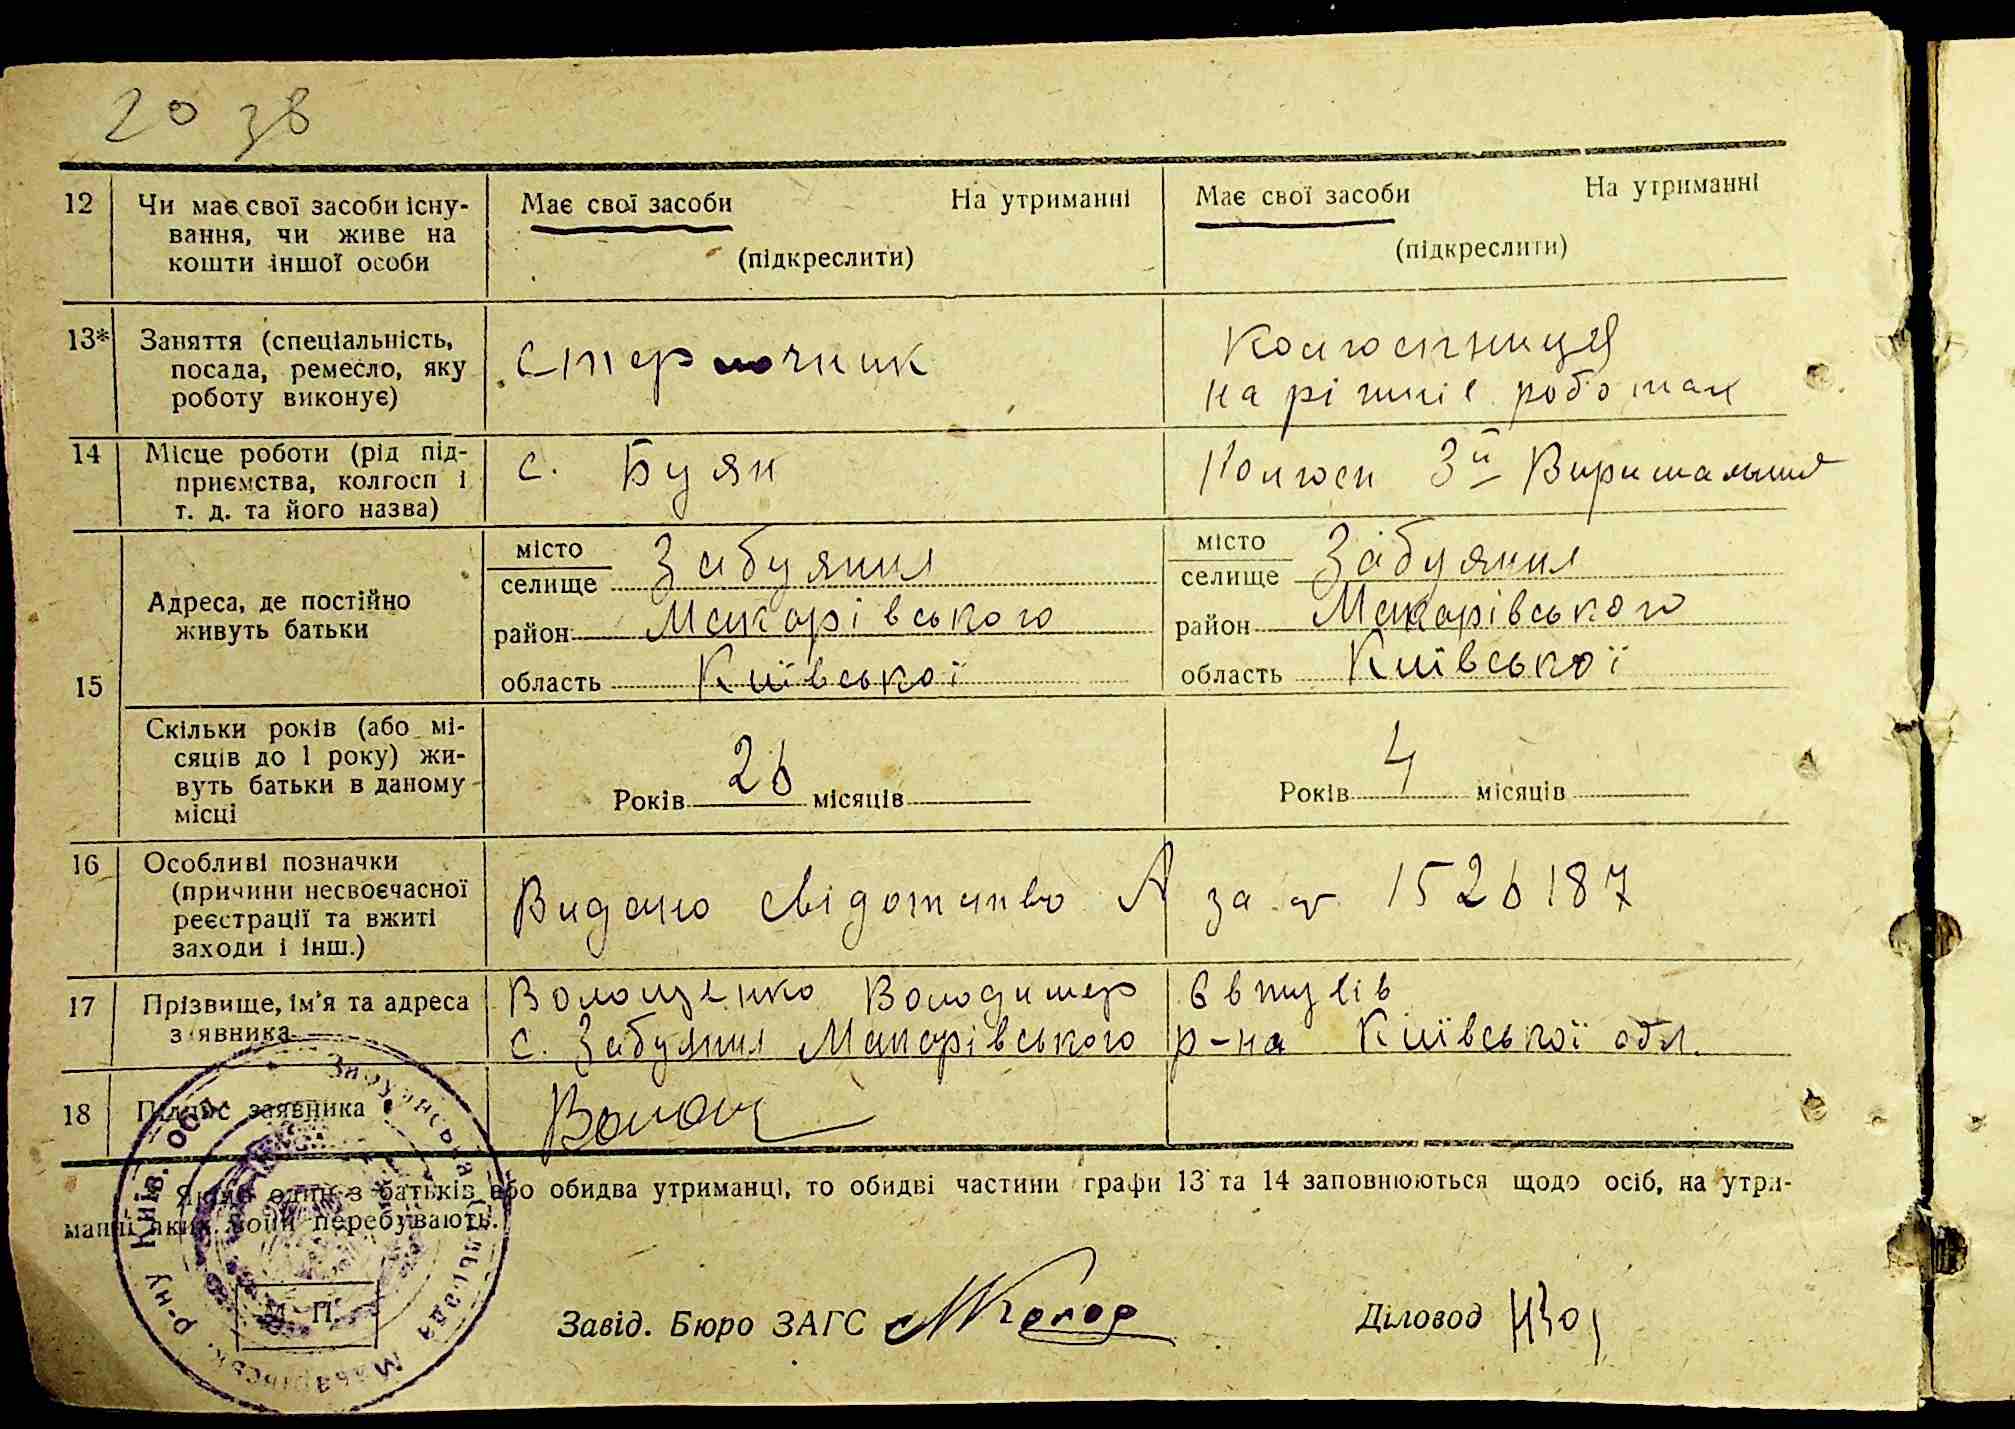 20 38
12 Чи має свої засоби існу- Має свої засоби На утриманні Має свої засоби На утриманні
вання, чи живе на
кошти іншої особи (підкреслити) (підкреслити)
13* Заняття (спеціальність, Колгоспниця
посада, ремесло, яку
роботу виконує) на різних роботах
14 Місце роботи (рід під- с. Буян Колгосп 3й Вирішальний
приємства, колгосп і
т. д. та його назва)
15 Адреса, де постійно
живуть батьки
місто селище Забуяння місто селище Забуяння
район Макарівського район Макарівського
область Київської область Київської
Скільки років (або мі-
сяців до 1 року) жи-
вуть батьки в даному
місці
Років 26 місяців Років 4 місяців
16 Особливі позначки
(причини несвоєчасної
реєстрації та вжиті
заходи і інш.)
Видано свідотство А за № 1526187
17 Прізвище, ім'я та адреса Волощенко Володимер
заявника с. Забуяння Макарівського р-на Київської обл.
18 Підпис заявника Волощ
Якщо один з батьків або обидва утриманці, то обидві частини графи 13 та 14 заповнюються щодо осіб, на утри-
манні яких вони перебувають.
Забуянська сільрада Макарівськ. р-ну Київ. обл.
М. П.
Завід. Бюро ЗАГС
Діловод